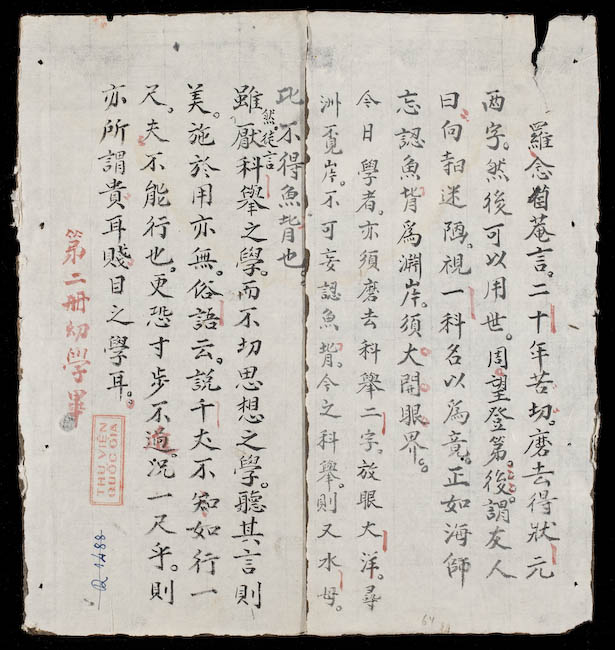 羅念菴言。二十年苦切。磨去得狀元
两字。然後可以用世。周望登第。後謂友人
曰向迷。視一科名以爲竟。正如海師
忘認魚背爲淵岸。須大開眼界。
今日學者。亦須磨去科舉二字。放眼大洋。尋
洲覓岸。不可妄認魚背。今之科舉。則又水母。
比不得魚背也
然。徒言
雖厭科舉之學。而不切思想之學。聽其言則
美。施於用亦無。俗語云。說千丈不知如行一
尺。夫不能行也。更恐寸步不過。况一尺乎。則
亦所謂貴耳賤目之學耳。
第二冊幼學畢
THƯ VIỆN
QUỐC GIA